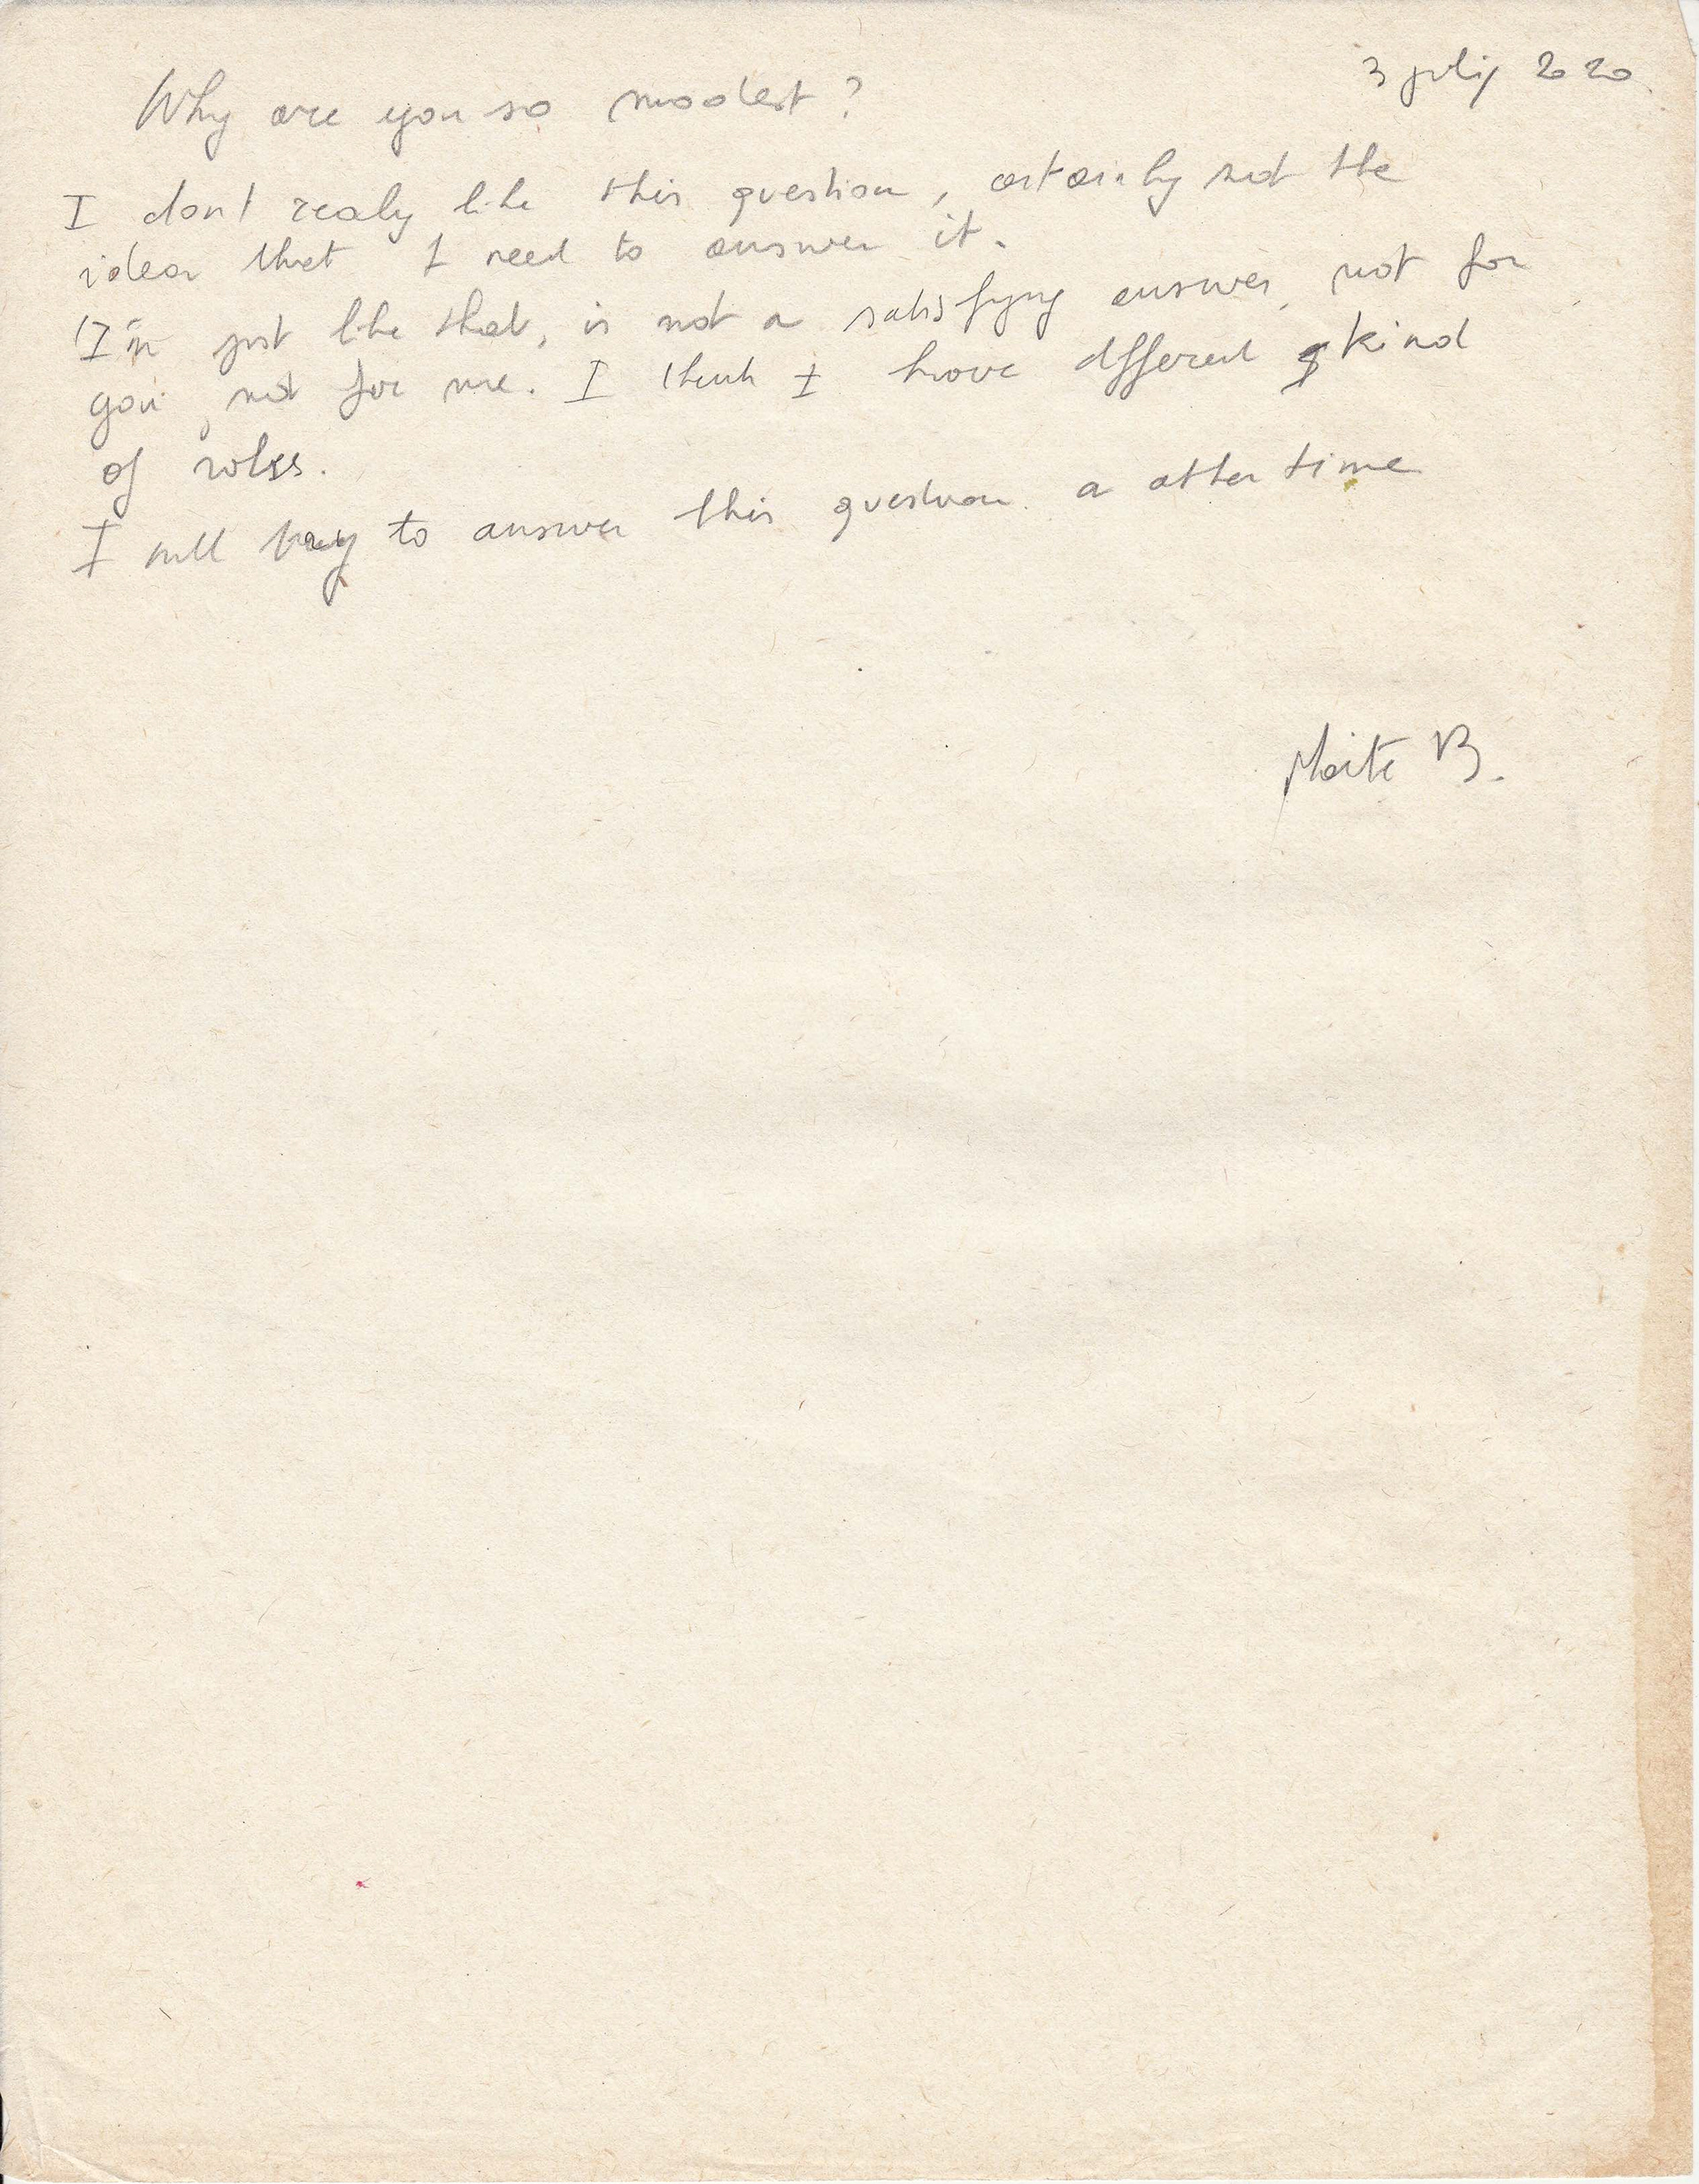 3 july 2020
Why are you so modest?
I dont realy like this question, certainly not the
idea that I need to answer it.
'I'm just like that, is not a satisfying answer, not for
you, not for me. I think I have different kind
of roles.
I will try to answer this question a other time
Maite B.